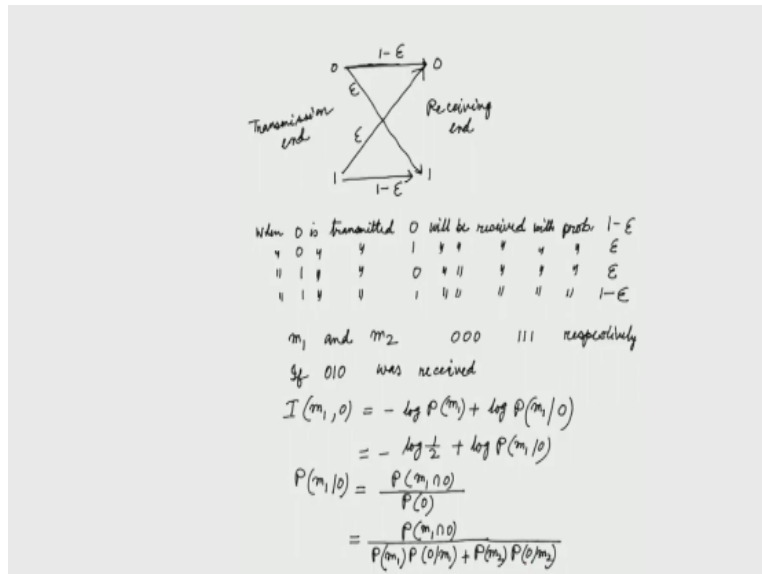 1-ε
0 0
ε
Transmission end
Receiving end
ε
1 1
1-ε
When 0 is transmitted 0 will be received with prob. 1-ε
" 0 " " 1 " " " " " ε
" 1 " " 0 " " " " " ε
" 1 " " 1 " " " " " 1-ε
m₁ and m₂ 000 111 respectively
If 010 was received
I(m₁,0) = - log P(m₁) + log P(m₁/0)
= - log 1/2 + log P(m₁/0)
P(m₁/0) = P(m₁∩0) / P(0)
= P(m₁∩0) / P(m₁)P(0/m₁) + P(m₂)P(0/m₂)